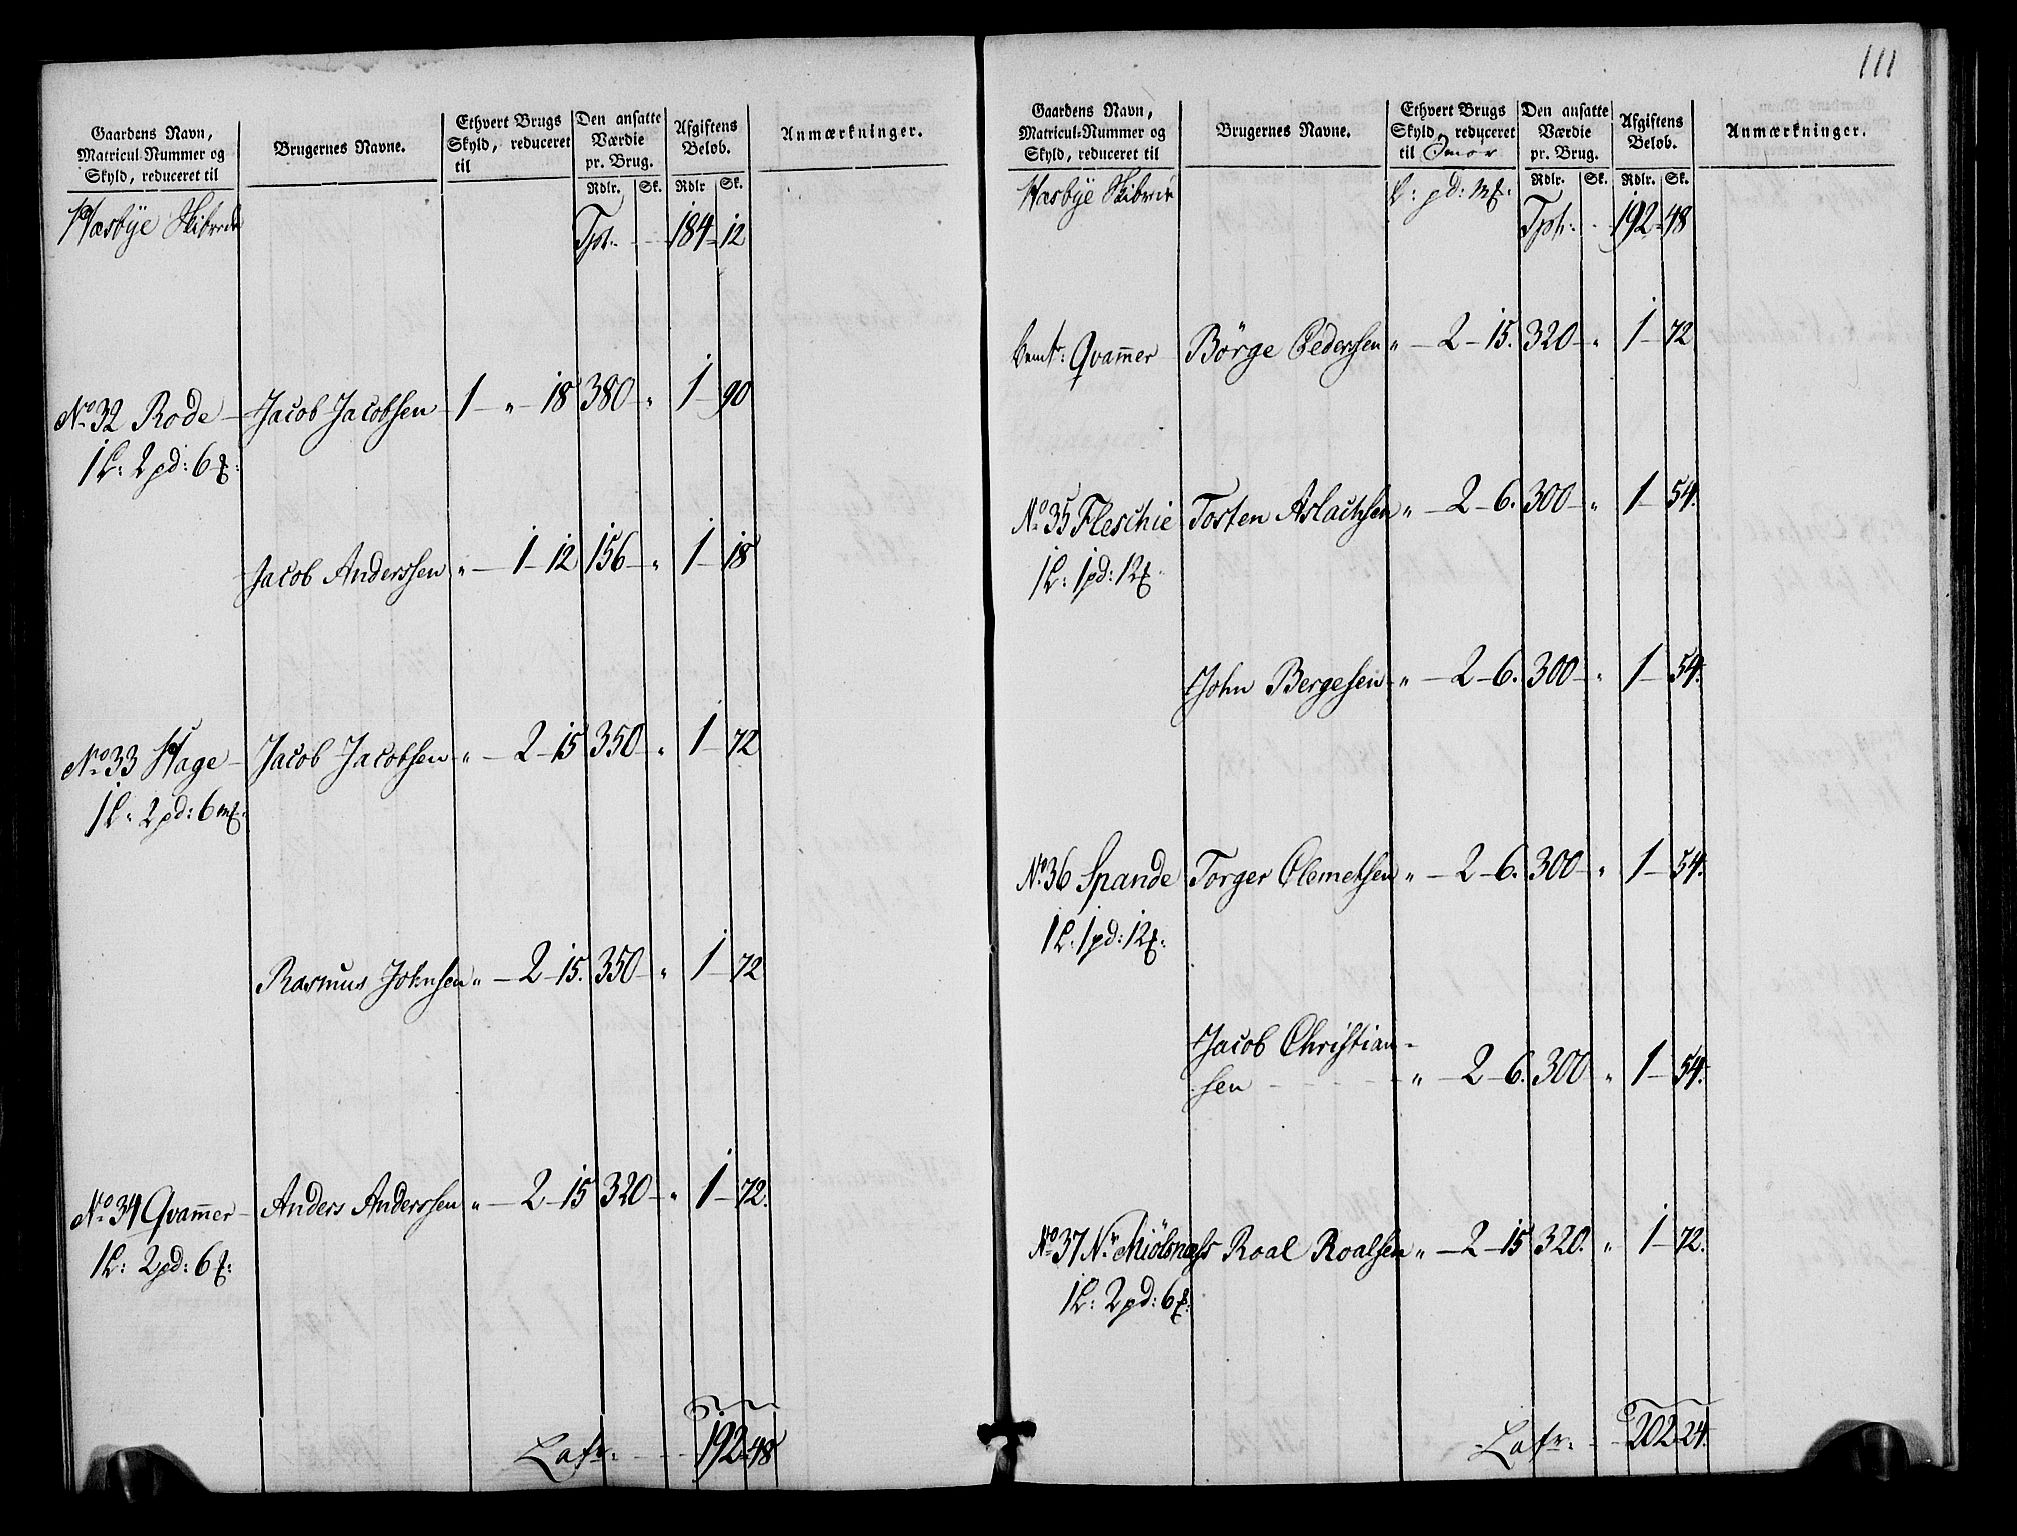 Gaardens Navn,
Matricul-Nummer og
Skyld, reduceret til
Brugernes Navne.
Ethvert Brugs
Skyld, reduceret
til
Den ansatte
Værdie
pr. Brug.
Rdlr. Sk.
Afgiftens
Beløb.
Rdlr Sk.
Anmærkninger.
Hæsbye Skibrede
Tpt: 184 - 12
No 32 Rode - Jacob Jacobsen 1 - " - 18 380 " 1 - 90
1 L: 2 pd: 6 f:
Jacob Anderssen " - 1 - 12 156 - " 1 - 18
No 33 Hage - Jacob Jacobsen " - 2 - 15 350 - " 1 - 72
1 L: 2 pd: 6 mf:
Rasmus Johnsen " - 2 - 15. 350 - " 1 - 72
No 34 Qvam̄er - Anders Anderssen " - 2 - 15 320 - " 1 - 72.
1 L: 2 pd: 6 f:
Lafr: 192 - 48
111
Gaardens Navn,
Matricul-Nummer og
Skyld, reduceret til
Brugernes Navne.
Ethvert Brugs
Skyld, reduceret
til Smør
Den ansatte
Værdie
pr. Brug.
Rdlr. Sk.
Afgiftens
Beløb.
Rdlr. Sk.
Anmærkninger.
Hæsbye Skibrede
L: pd: mf:
Tpt: 192 - 48
Qvam̄er Börge Pederssen " - 2 - 15. 320 - " 1 - 72
No 35 Fleschie Tosten Aslachsen " - 2 - 6. 300 - " 1 - 54.
1 L: 1 pd: 12 f:
John Bergesen " - 2 - 6. 300 - " 1 - 54.
No 36 Spande Torger Clemetsen " - 2 - 6. 300 - " 1 - 54.
1 L: 1 pd: 12 f:
Jacob Christian-
sen " - 2 - 6. 300 " 1 - 54.
No 37 Nr Miölsnæss Roal Roalsen " - 2 - 15 320. " 1 - 72.
1 L: 2 pd: 6 f:
Lafr: 202 - 24.